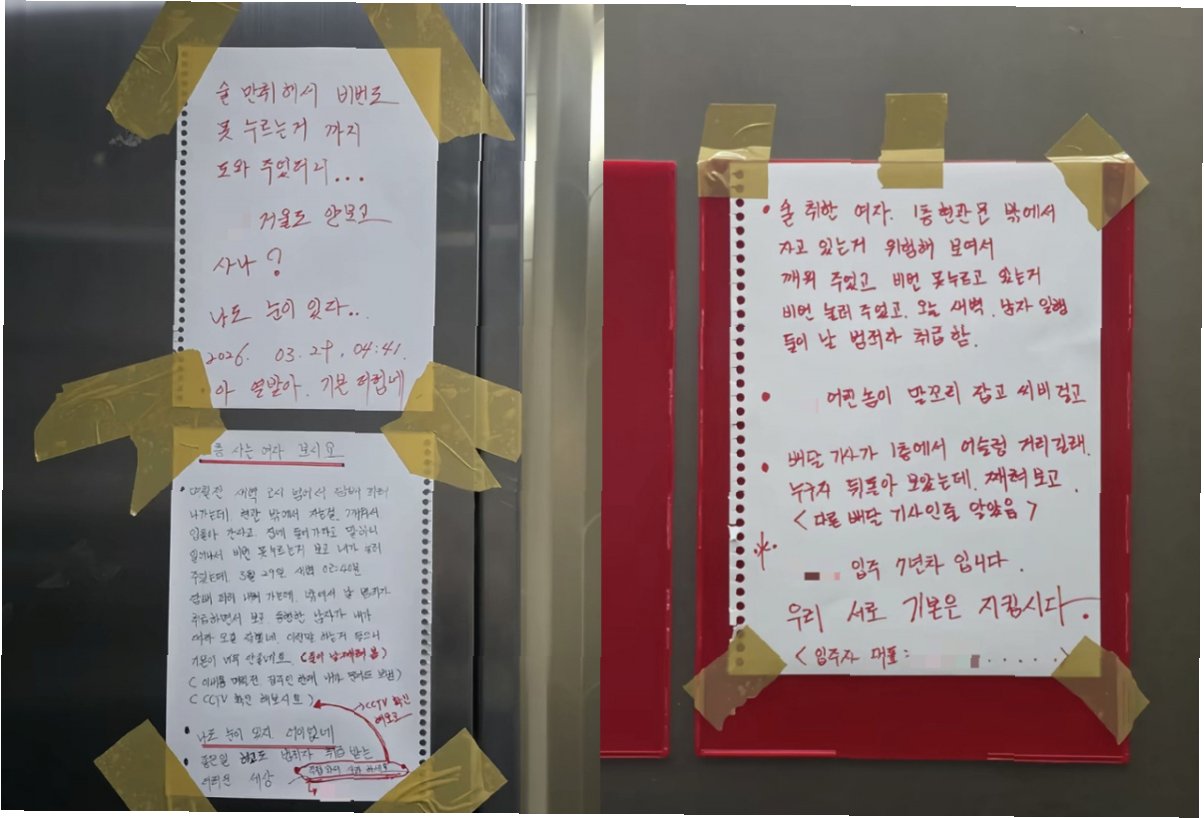 술 만취해서 비번도
못 누르는거 까지
도와 주었더니...
거울도 안보고
사나?
나도 눈이 있다..
2026. 03. 29. 04:41.
아 열받아. 기분 더럽네
층 사는 여자 보시오
새벽 2시 넘어서 담배 피러
나가는데. 현관 밖에서 자는걸. 깨워서
입돌아 간다고. 집에 들어가라고 말하니
일어나서 비번 못누르는거 보고 내가 눌러
주었는데. 3월 29일 새벽 02:40분
담배 피러 내려 가는데. 밖에서 날 범죄자
취급하면서 보고. 동행한 남자가 내가
여자 모월 이딴말 하는거 들으니
기분이 너무 안좋네요. (둘이 날째려 봄)
( CCTV 확인 해보시오 )
→CCTV 확인
해보고
나도 눈이 있지 어이없네
좋은일 하고도 범죄자 취급 받는
더러운 세상
• 술 취한 여자. 1층현관문 밖에서
자고 있는거 위험해 보여서
깨워 주었고 비번 못누르고 있는거
비번 눌러 주었고. 오늘 새벽. 남자 일행
들이 날 범죄자 취급함.
• 어린놈이 말꼬리 잡고 씨비걸고
• 배달 기사가 1층에서 어슬렁 거리길래.
누구지 뒤돌아 보았는데. 째려보고.
<다른 배달 기사인줄 알았음>
입주 7년차 입니다.
우리 서로 기본은 지킵시다.
<입주자 대표: ......>